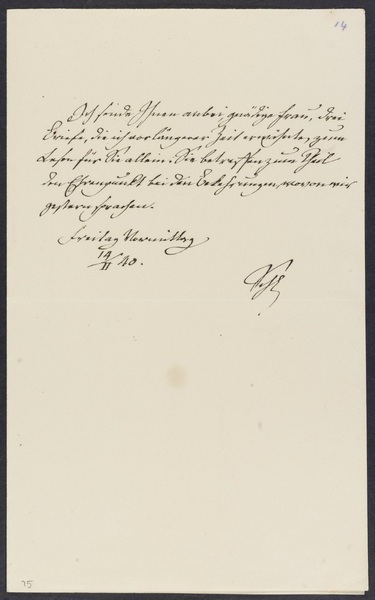 14
Ich sende Ihnen anbei gnädige Frau, drei
Briefe, die ich vor längerer Zeit erwähnte, zum
Lesen für Sie allein. Sie betreffen zum Theil
den Ehrenpunkt bei den Bekehrungen, wovon wir
gestern sprachen.
Freitag Vormittag
14/II 40.
Schl
75